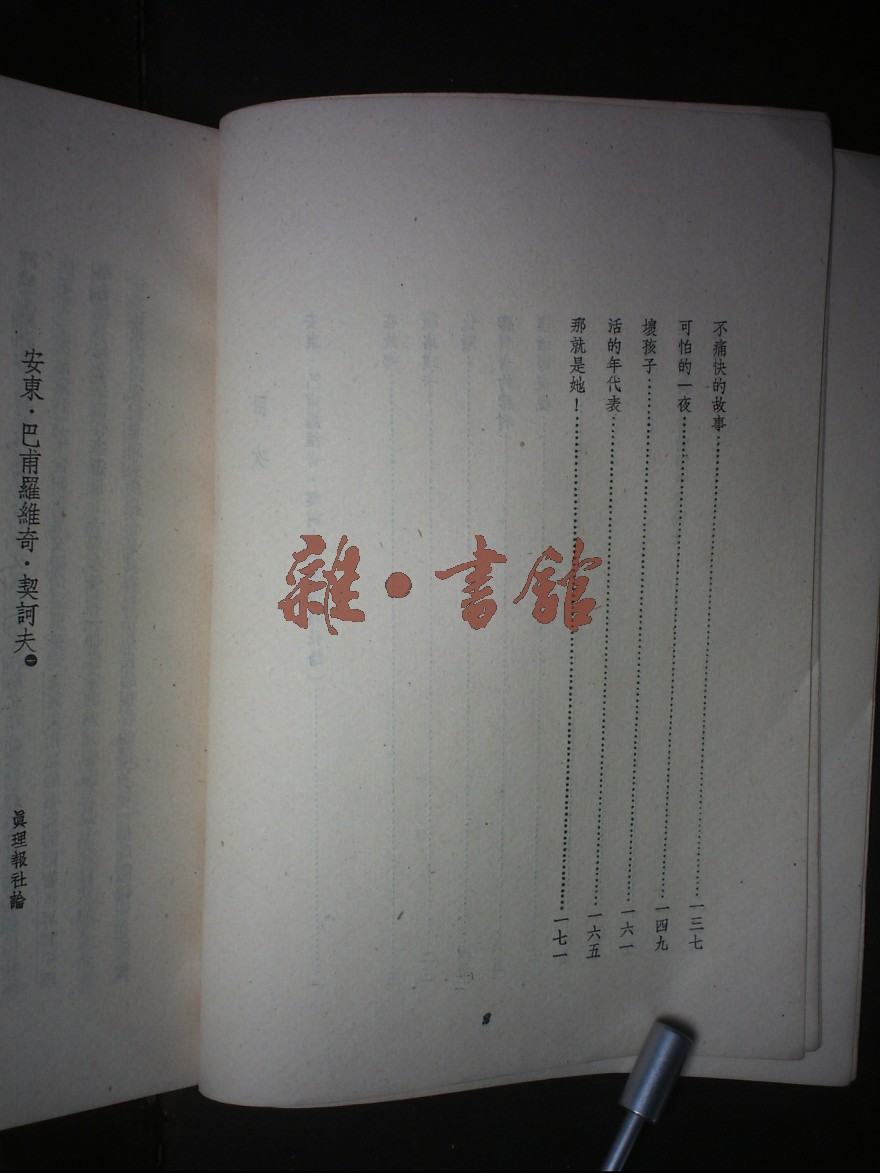 不痛快的故事……一三七
可怕的一夜……一四九
壞孩子……一六一
活的年代表……一六五
那就是她！……一七一
2
安東·巴甫羅維奇·契訶夫㊀
眞理報社論
雜·書館